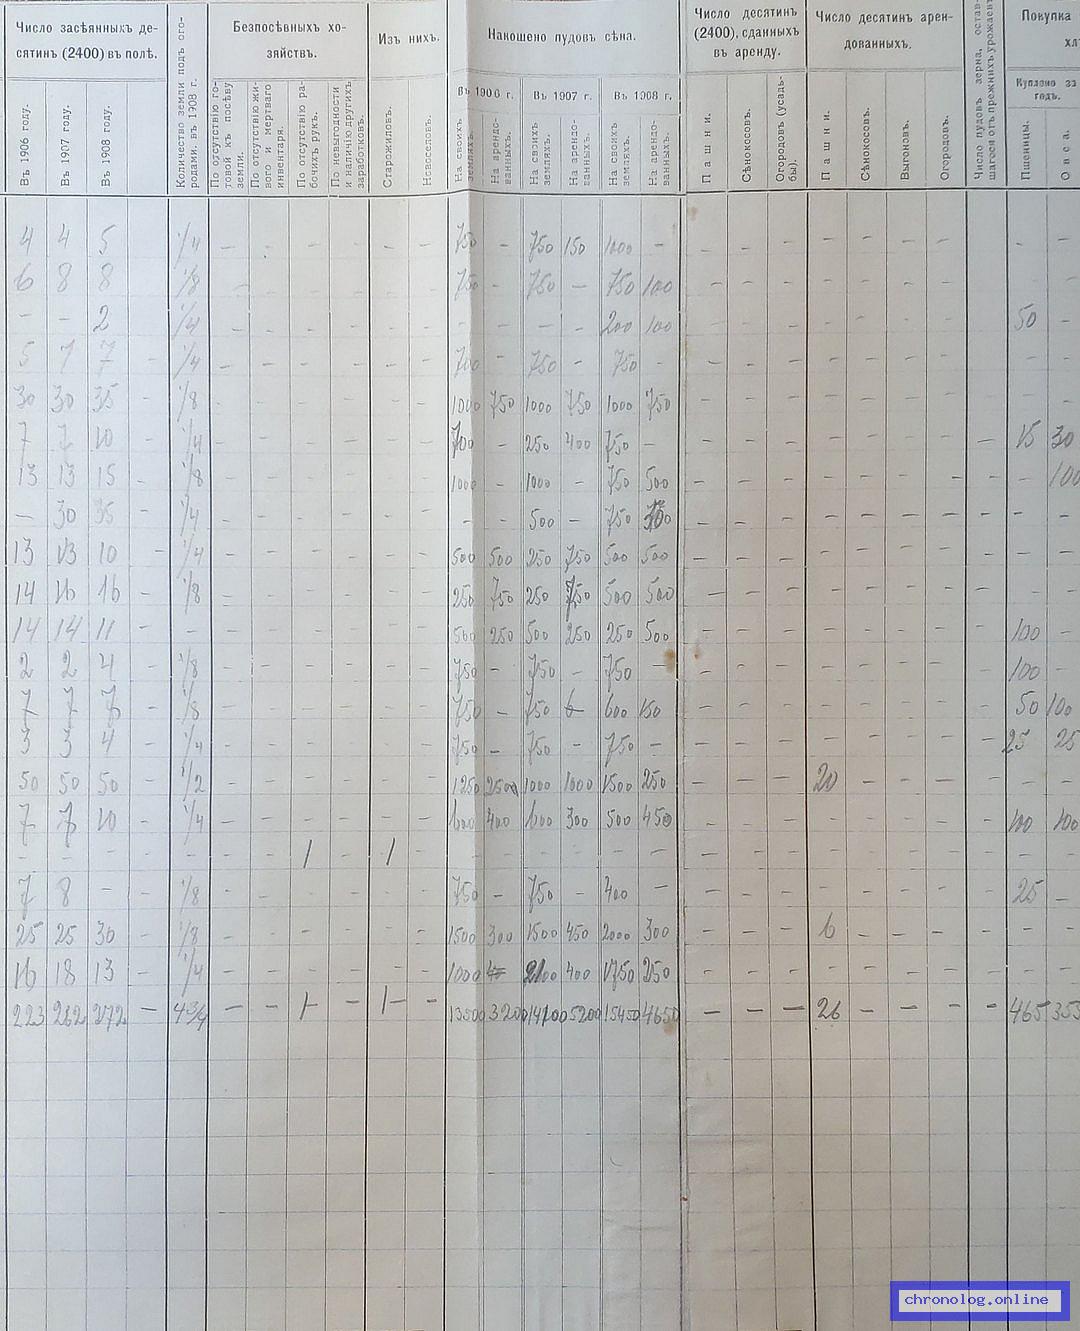 Число засѣянныхъ де-
сятинъ (2400) въ полѣ.
Въ 1906 году.
Въ 1907 году.
Въ 1908 году.
Количество земли подъ ого-
родами. въ 1908 г.
Безпосѣвныхъ хо-
зяйствъ.
По отсутствію го-
товой къ посѣву
земли.
По отсутствію жи-
вого и мертваго
инвентаря.
По отсутствію ра-
бочихъ рукъ.
По невыгодности
и наличію другихъ
заработковъ.
Изъ нихъ.
Старожиловъ.
Новоселовъ.
Накошено пудовъ сѣна.
Въ 1906 г.
На своихъ
земляхъ.
На арендо-
ванныхъ.
Въ 1907 г.
На своихъ
земляхъ.
На арендо-
ванныхъ.
Въ 1908 г.
На своихъ
земляхъ.
На арендо-
ванныхъ.
Число десятинъ
(2400), сданныхъ
въ аренду.
Пашни.
Сѣнокосовъ.
Огородовъ (усадь-
бы).
Число десятинъ арен-
дованныхъ.
Пашни.
Сѣнокосовъ.
Выгоновъ.
Огородовъ.
Число пудовъ зерна, остав-
шагося отъ прежнихъ урожаевъ
Покупка
хл
Куплено за
годъ.
Пшеницы.
Овса.
4 4 5 1/4 - - - - - - 750 - 750 150 1000 - - - - - - - - - - -
6 8 8 1/8 - - - - - - 750 - 750 - 750 100 - - - - - - - - - -
- - 2 1/4 - - - - - - - - - - 200 100 - - - - - - - - 50 -
5 7 7 - 1/4 - - - - - - 700 - 750 - 750 - - - - - - - - - - -
30 30 35 - 1/8 - - - - - - 1000 750 1000 750 1000 750 - - - - - - - - - -
7 7 10 - 1/4 - - - - - - 700 - 250 400 750 - - - - - - - - - 15 30
13 13 15 - 1/8 - - - - - - 1000 - 1000 - 750 500 - - - - - - - - - 100
- 30 35 - 1/4 - - - - - - - - 500 - 750 - - - - - - - - - -
13 13 10 - 1/4 - - - - - - 500 500 250 750 500 500 - - - - - - - - - -
14 16 16 - 1/8 - - - - - - 250 750 250 750 500 500 - - - - - - - - - -
14 14 11 - - - - - - - - 500 250 500 250 250 500 - - - - - - - - 100 -
2 2 4 - 1/8 - - - - - - 750 - 750 - 750 - - - - - - - - - 100 -
7 7 7 - 1/8 - - - - - - 750 - 750 600 150 - - - - - - - - 50 100
3 3 4 - 1/4 - - - - - - 750 - 750 - 750 - - - - - - - - - 25 25
50 50 50 - 1/2 - - - - - - 1250 2500 1000 1000 1500 250 - - - 20 - - - - - -
7 7 10 - 1/4 - - - - - - 600 400 600 300 500 450 - - - - - - - - 100 100
- - - - - - - 1 - 1 - - - - - - - - - - - - - - - - -
7 8 - - 1/8 - - - - - - 750 - 750 - 400 - - - - - - - - - 25 -
25 25 30 - 1/8 - - - - - - 1500 300 1500 450 2000 300 - - - 6 - - - - - -
16 18 13 - 1/4 - - - - - - 1000 400 1750 250 - - - - - - - - - -
223 262 272 - 4 3/4 - - 1 - 1 - 13500 3200 14100 5200 15450 4650 - - - 26 - - - - 465 355
chronolog.online